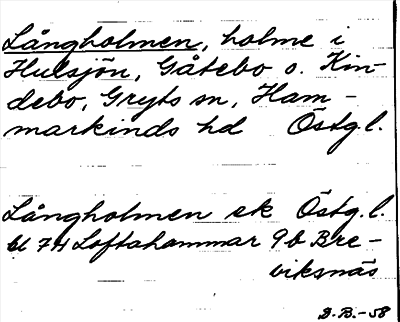 Långholmen, holme i
Hulsjön, Gåtebo o. Kin-
debo, Gryts sn, Ham-
markinds hd Östg.l.
Långholmen ek Östg.l.
bl 7H Loftahammar 9b Bre-
viksnäs
B.B.-58